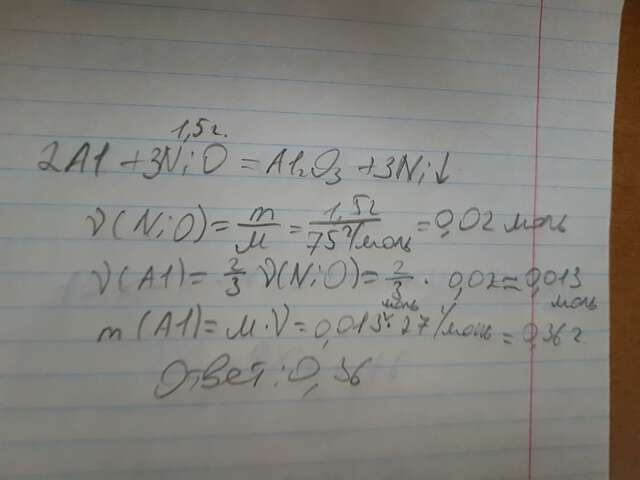 1,5г.
2Al + 3NiO = Al₂O₃ + 3Ni↓
ν(NiO) = m/M = 1,5г/75г/моль = 0,02 моль
ν(Al) = 2/3 ν(NiO) = 2/3 · 0,02 = 0,013 моль
m(Al) = M·ν = 0,013 моль · 27 г/моль = 0,36 г.
Ответ: 0,36